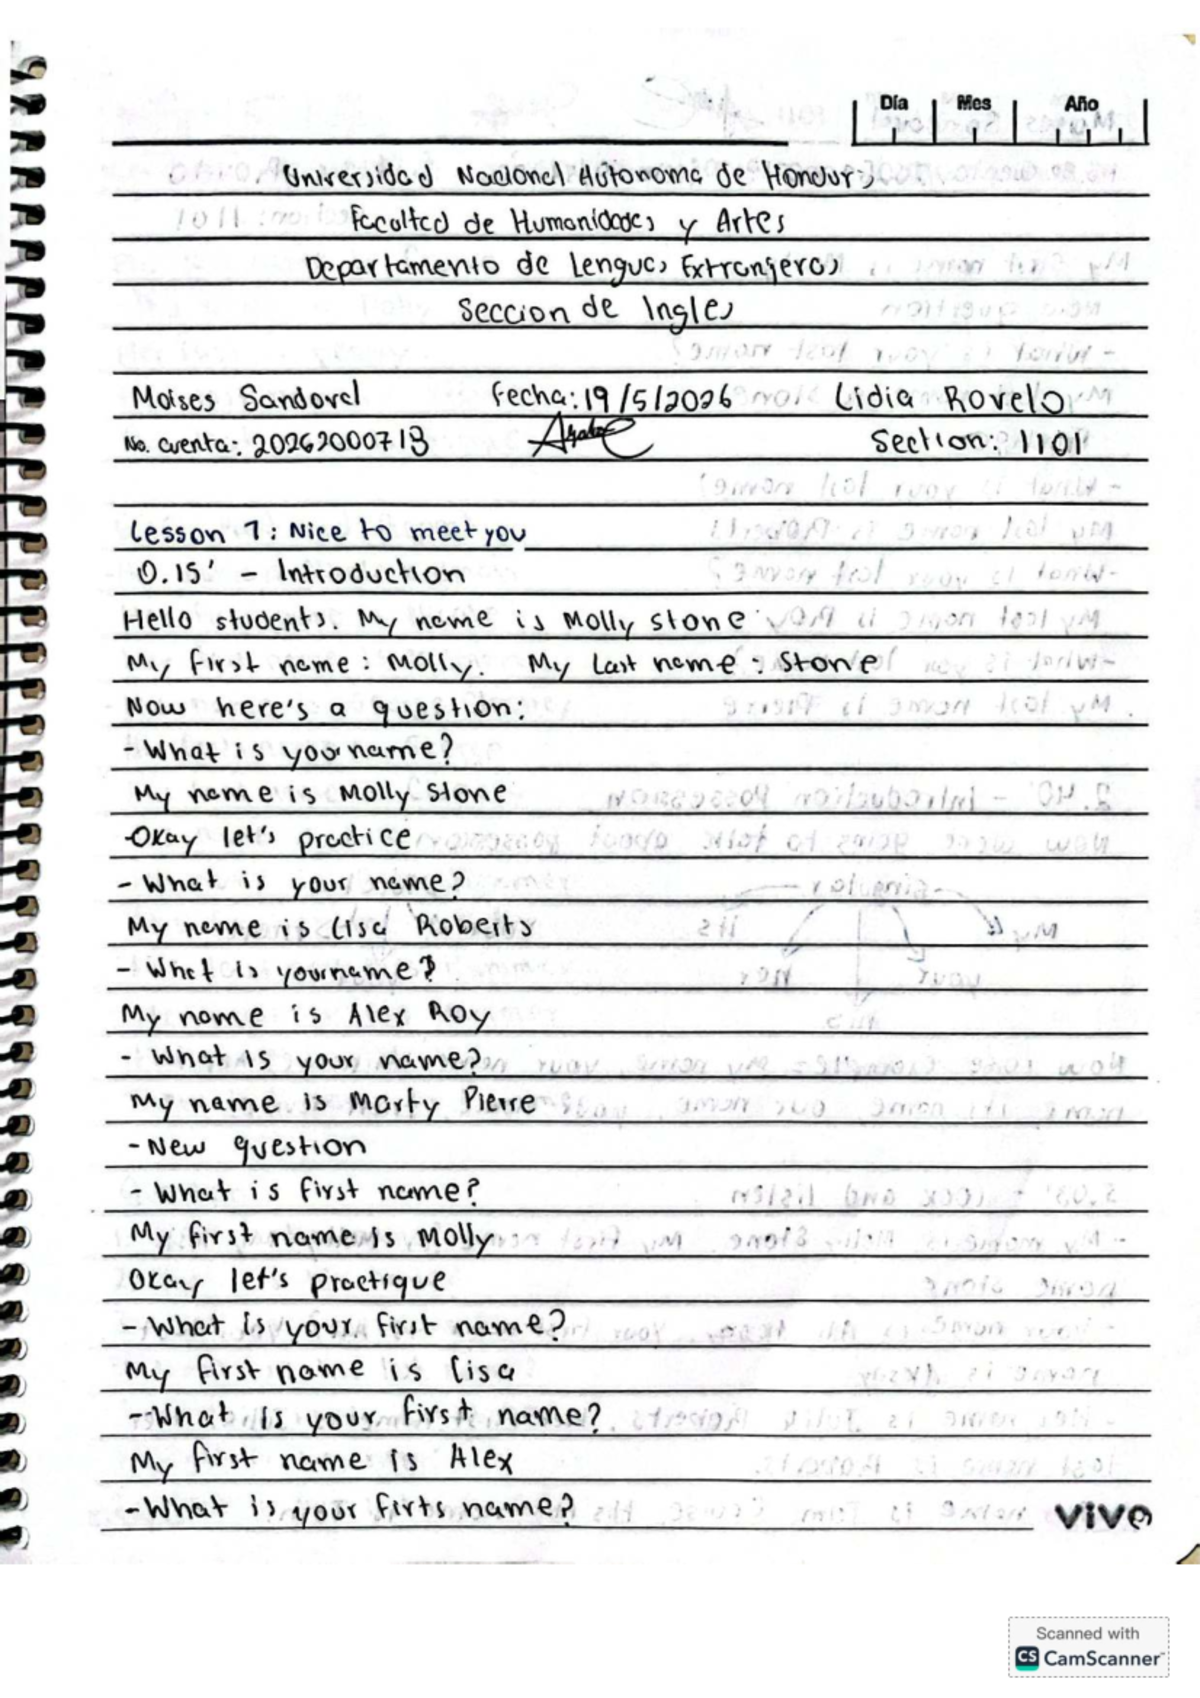 Día Mes Año
Universidad Nacional Autonoma de Honduras
Facultad de Humanidades y Artes
Departamento de Lenguas Extranjeras
Seccion de Ingles
Moises Sandoval Fecha: 19/5/2026 Lidia Rovelo
No. cuenta: 20262000713 Section: 1101
Lesson 1: Nice to meet you
0.15' - Introduction
Hello students. My name is Molly stone
My first name: Molly. My Last name: Stone
Now here's a question:
- What is your name?
My name is Molly Stone
-Okay let's practice
- What is your name?
My name is Lisa Roberts
- What is your name?
My name is Alex Roy
- What is your name?
My name is Marty Pierre
- New question
- What is first name?
My first name is Molly
Okay let's practique
- What is your first name?
My first name is Lisa
- What is your first name?
My first name is Alex
- What is your firts name?
vive
Scanned with
CS CamScanner